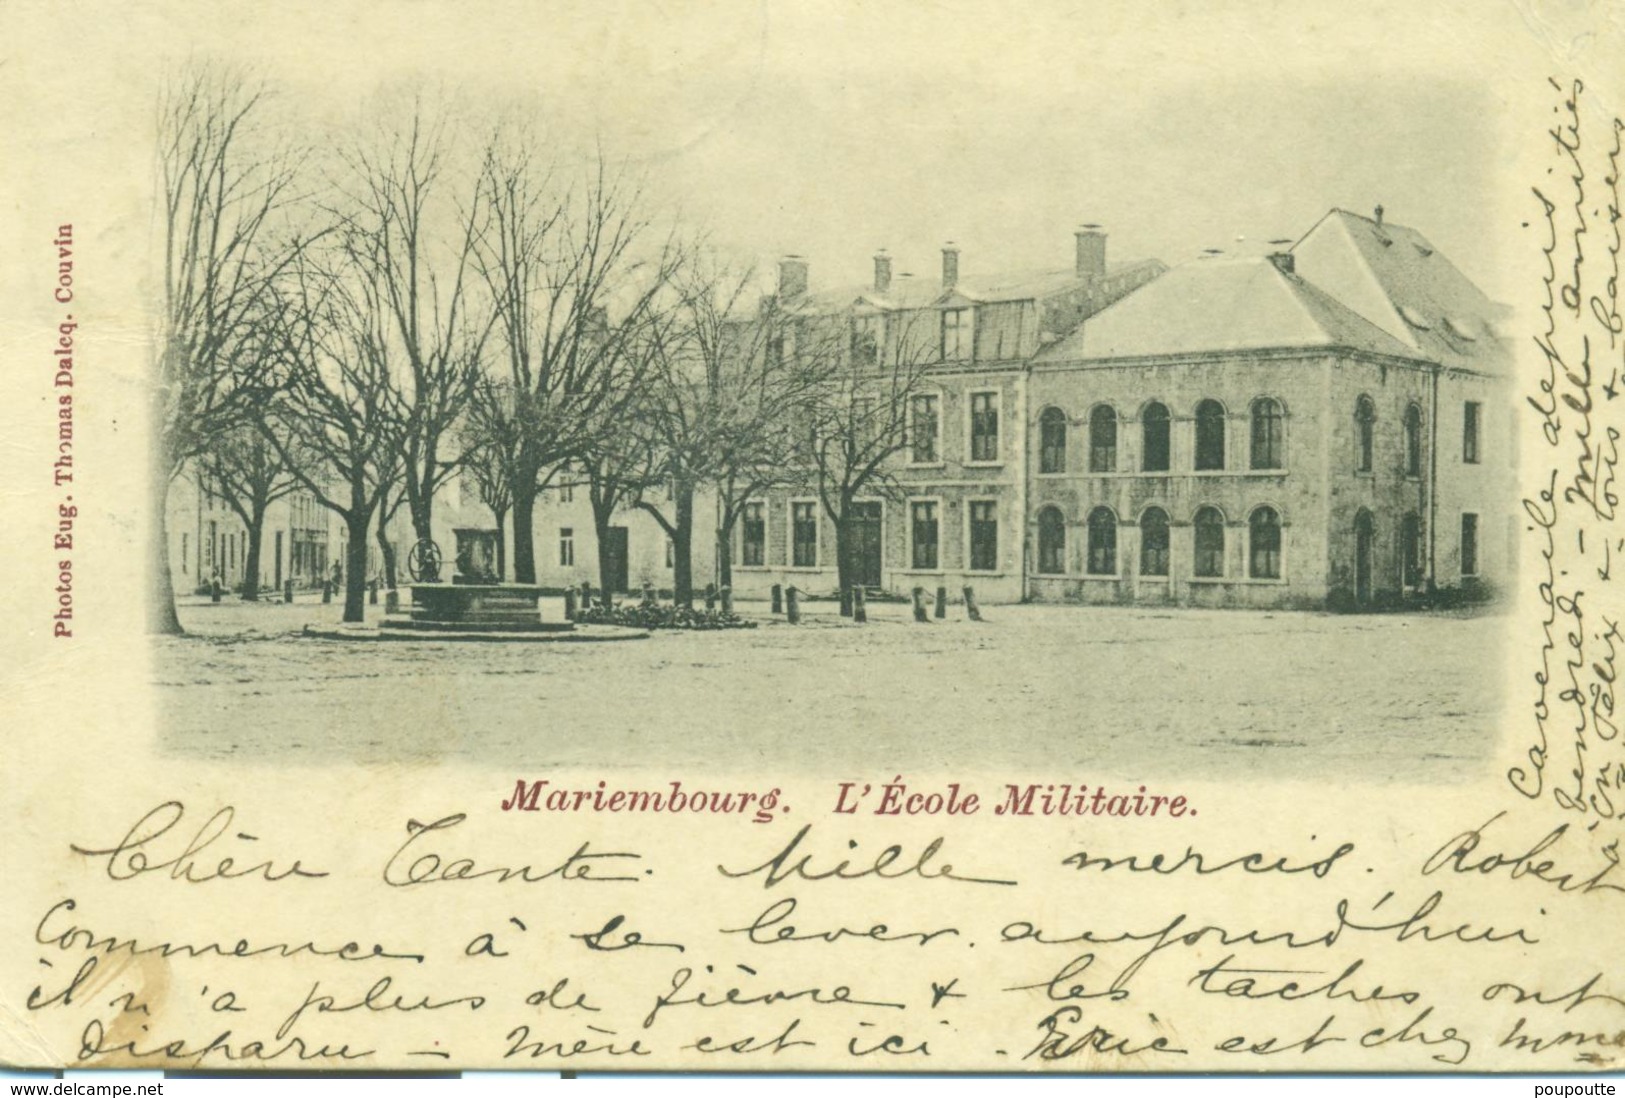 Photos Eug. Thomas Dalcq. Couvin
Mariembourg. L'École Militaire.
Chère Tante. Mille mercis. Robert
commence à se lever. aujourd'hui
il n'a plus de fièvre & les taches ont
disparu – Mère est ici. Eric est chez Mme
Cavenaile depuis
vendredi – Mille amitiés
à tous & baisers
www.delcampe.net
poupoutte